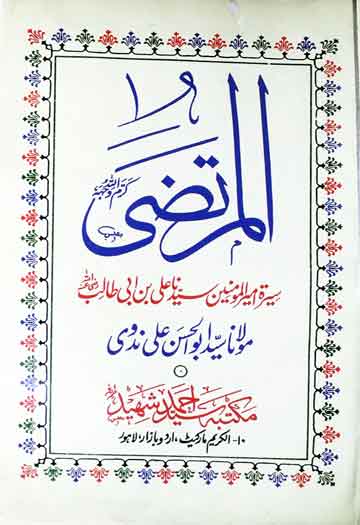 المرتضیٰ
کرم اللہ وجہہ
یعنی
سیرۃ امیر المومنین سیدنا علی بن ابی طالب رضی اللہ عنہ
مولانا سید ابوالحسن علی ندوی
مکتبہ سید احمد شہید
۱۰- الکریم مارکیٹ، اردو بازار، لاہور